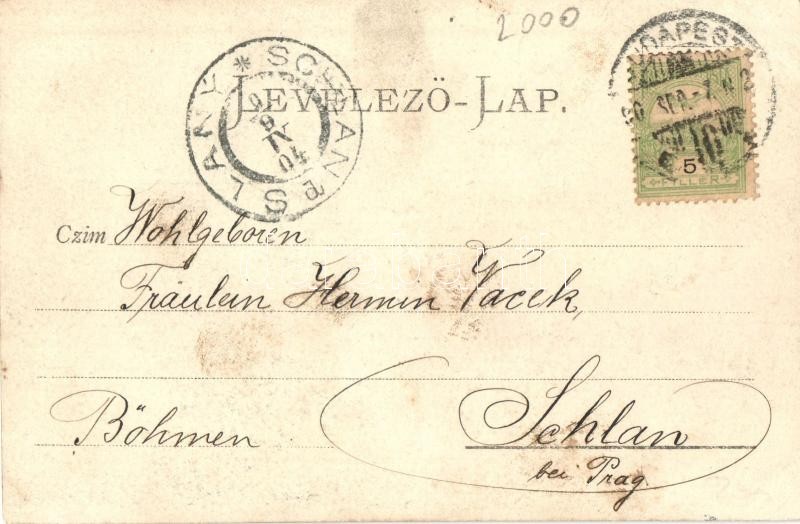 2000
LEVELEZŐ-LAP.
SCHLAN SLANÝ
04
BUDAPEST
SEP. - 7
5
FILLÉR
Czim Wohlgeboren
Fräulein Hermin Vacek,
Böhmen Schlan
bei Prag.